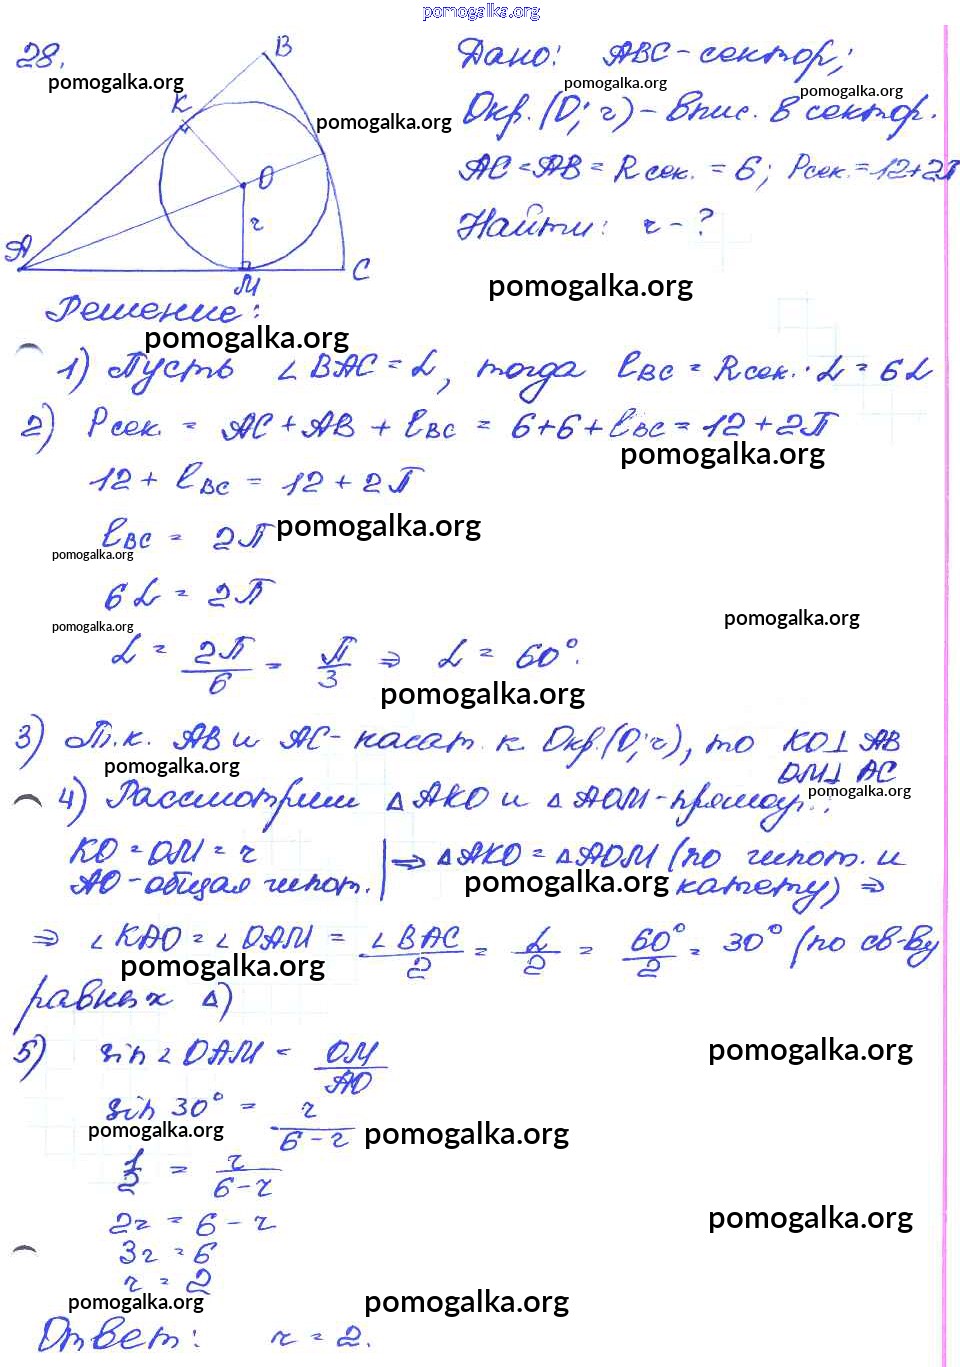 pomogalka.org
28.
pomogalka.org
B
K
pomogalka.org
O
r
A
M
C
Дано: ABC - сектор;
pomogalka.org
pomogalka.org
Окр. (O; r) - впис. в сектор.
AC = AB = R сек. = 6; Pсек. = 12+2П
Найти: r - ?
pomogalka.org
Решение:
pomogalka.org
1) Пусть ∠BAC = α, тогда lBC = Rсек. · α = 6α
2) Pсек. = AC + AB + lBC = 6+6+lBC = 12 + 2П
pomogalka.org
12 + lBC = 12 + 2П
lBC = 2П
pomogalka.org
pomogalka.org
6α = 2П
pomogalka.org
pomogalka.org
α = 2П/6 = П/3 ⇒ α = 60°.
pomogalka.org
3) Т.к. AB и AC - касат. к Окр.(O; r), то KO⊥AB
OM⊥AC
pomogalka.org
pomogalka.org
4) Рассмотрим ΔAKO и ΔAOM - прямоуг.:
KO = OM = r
AO - общая гипот. | ⇒ ΔAKO = ΔAOM (по гипот. и
катету) ⇒
pomogalka.org
⇒ ∠KAO = ∠OAM = ∠BAC/2 = α/2 = 60°/2 = 30° (по св-ву
pomogalka.org
равных Δ)
5) sin∠OAM = OM/AO
pomogalka.org
sin 30° = r/6-r
pomogalka.org
pomogalka.org
1/2 = r/6-r
2r = 6 - r
pomogalka.org
3r = 6
r = 2
pomogalka.org
pomogalka.org
Ответ: r = 2.